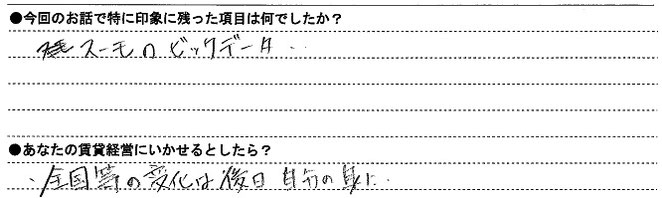 ●今回のお話で特に印象に残った項目は何でしたか？
スーモのビックデータ‥
●あなたの賃貸経営にいかせるとしたら？
・全国等の変化は後日自分の身に・